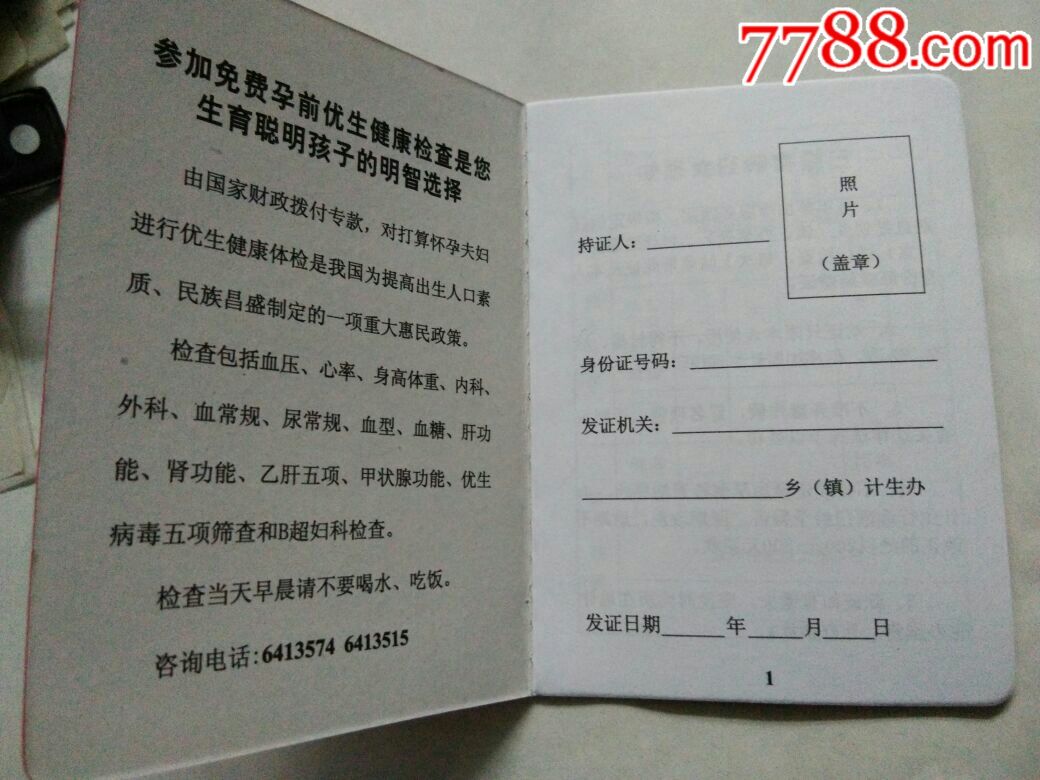 7788.com
参加免费孕前优生健康检查是您
生育聪明孩子的明智选择
由国家财政拨付专款，对打算怀孕夫妇
进行优生健康体检是我国为提高出生人口素
质、民族昌盛制定的一项重大惠民政策。
检查包括血压、心率、身高体重、内科、
外科、血常规、尿常规、血型、血糖、肝功
能、肾功能、乙肝五项、甲状腺功能、优生
病毒五项筛查和B超妇科检查。
检查当天早晨请不要喝水、吃饭。
咨询电话:6413574 6413515
照
片
（盖章）
持证人：
身份证号码：
发证机关：
乡（镇）计生办
发证日期 年 月 日
1